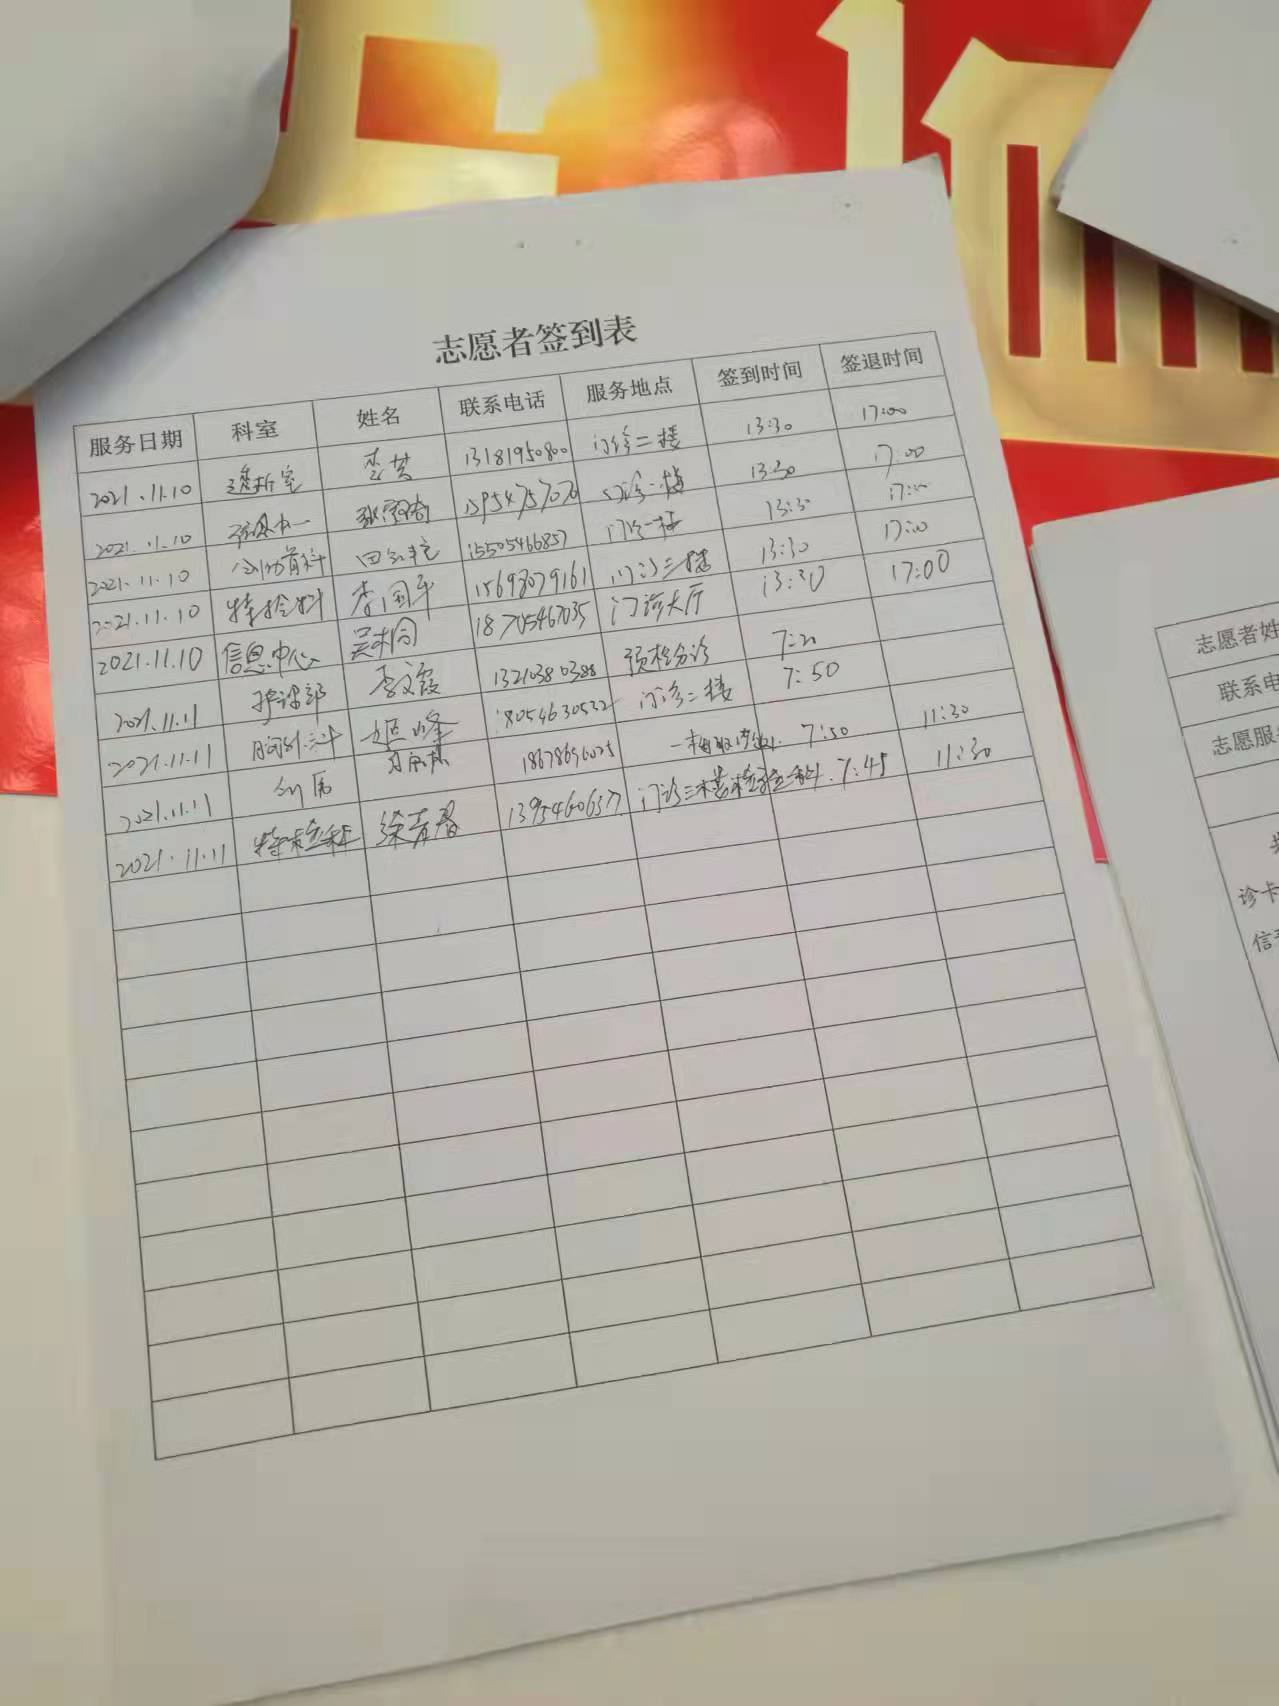 志愿者签到表
服务日期 科室 姓名 联系电话 服务地点 签到时间 签退时间
2021.11.10 透析室 李英 13181950800 门诊二楼 13:30 17:00
2021.11.10 门诊一楼 13:30 17:00
2021.11.10 15505466857 门诊一楼 13:30 17:00
2021.11.10 特检科 李国平 15698079161 门诊三楼 13:30 17:00
2021.11.10 信息中心 18705467035 门诊大厅 13:30 17:00
2021.11.11 李文霞 13210380388 预检分诊 7:20
2021.11.11 胸外科 18054630532 门诊二楼 7:50
2021.11.11 7:50 11:30
2021.11.11 特检科 徐若春 13954606377 门诊三楼检验科 7:45 11:30
志愿者姓
联系电
志愿服
诊卡
信